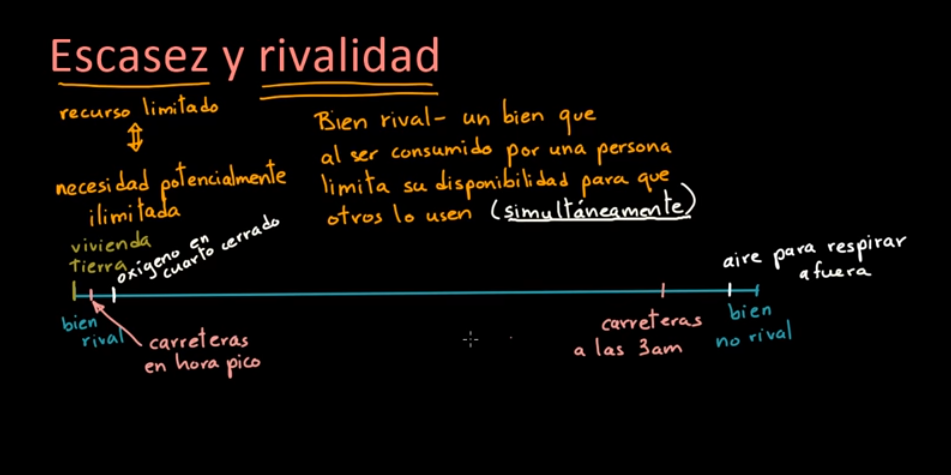 Escasez y rivalidad
recurso limitado
necesidad potencialmente
ilimitada
Bien rival- un bien que
al ser consumido por una persona
limita su disponibilidad para que
otros lo usen (simultáneamente)
vivienda
tierra
oxígeno en
cuarto cerrado
aire para respirar
afuera
bien
rival
carreteras
en hora pico
carreteras
a las 3am
bien
no rival